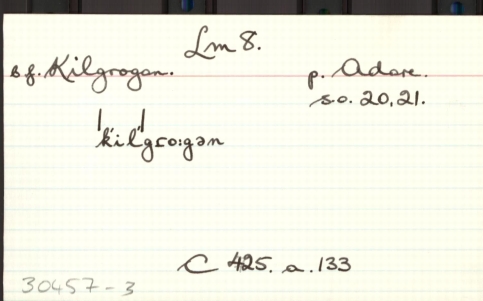 Lm 8.
b.f. Kilgrogan. p. Adare.
s.o. 20,21.
ˈkilˈgro:gən
C 425. a. 133
30457-3